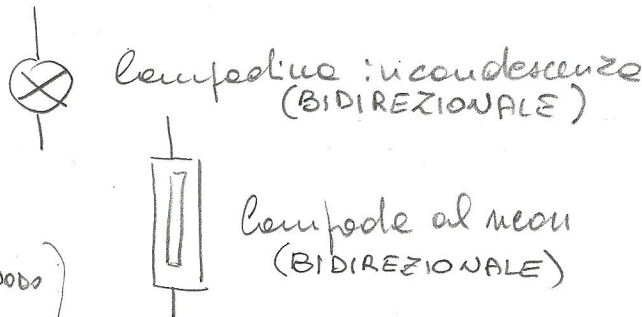 lampadina incandescenza
(BIDIREZIONALE)
lampade al neon
(BIDIREZIONALE)